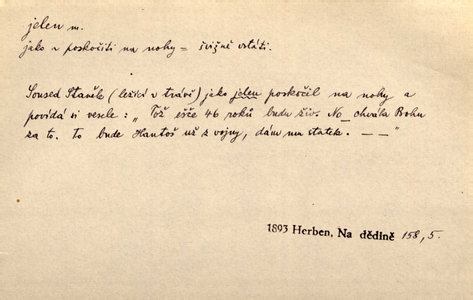 jelen m.
jako v poskočiti na nohy = svižně vstáti.
Soused Staněk (ležící v trávě) jako jelen poskočil na nohy a
povídá si vesele: „Tož ešče 46 roků budu živ. No_ chvála Bohu
za to. To bude Hantoš už z vojny, dám mu statek. — —"
1893 Herben, Na dědině 158, 5.